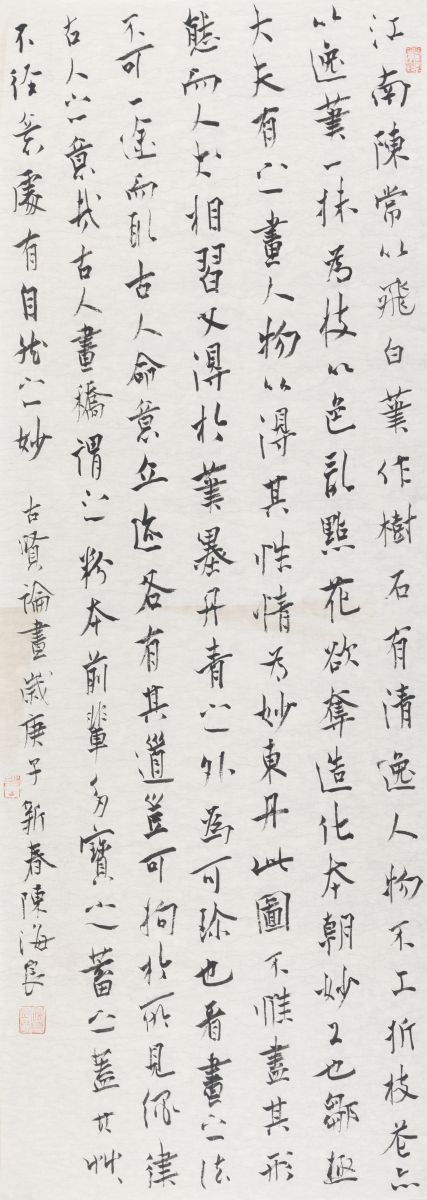 江南陳常以飛白筆作樹石有清逸人物不工折枝花亦
以逸筆一抹為枝以色亂點花欲奪造化本朝妙工也鄒極
大夫有之畫人物以得其性情為妙東丹此圖不惟盡其形
態而人犬相習又得於筆墨丹青之外為可珍也看畫之法
不可一途而取古人命意立迹各有其道豈可拘於所見繩律
古人之意哉古人畫稿謂之粉本前輩多寶之蓄之蓋其艸艸
不經意處有自然之妙 古賢論畫歲庚子新春陳海良